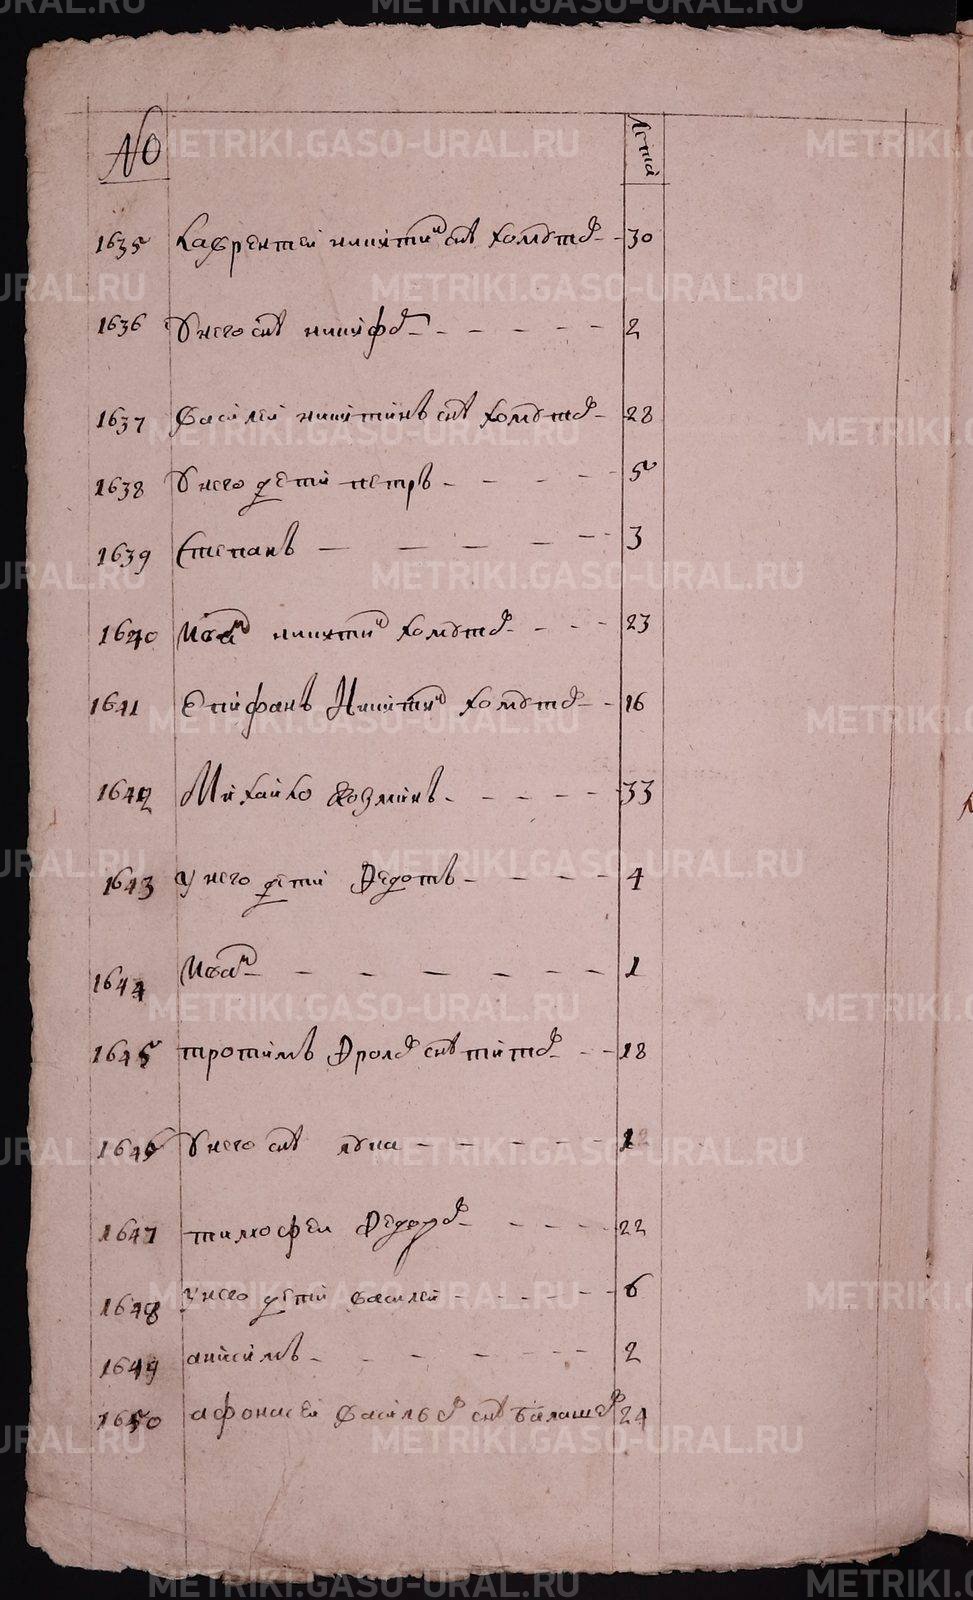 № Лета
1635 Лаврентей никитин снъ хомутов 30
1636 У него снъ никифор 2
1637 Василей никитинъ снъ хомутов 28
1638 У него дети петръ 5
1639 Степанъ 3
1640 Иван никитин хомутов 23
1641 Епифанъ Никитин хомутов 16
1642 Михайло Козминъ 33
1643 у него дети Федотъ 4
1644 Иван 1
1645 трофимъ Фролов снъ титов 18
1646 У него снъ лука
1647 тимофеи Федоров 22
1648 У него дети василей 6
1649 анисимъ 2
1650 афонасей Васильев снъ балашов 24
METRIKI.GASO-URAL.RU